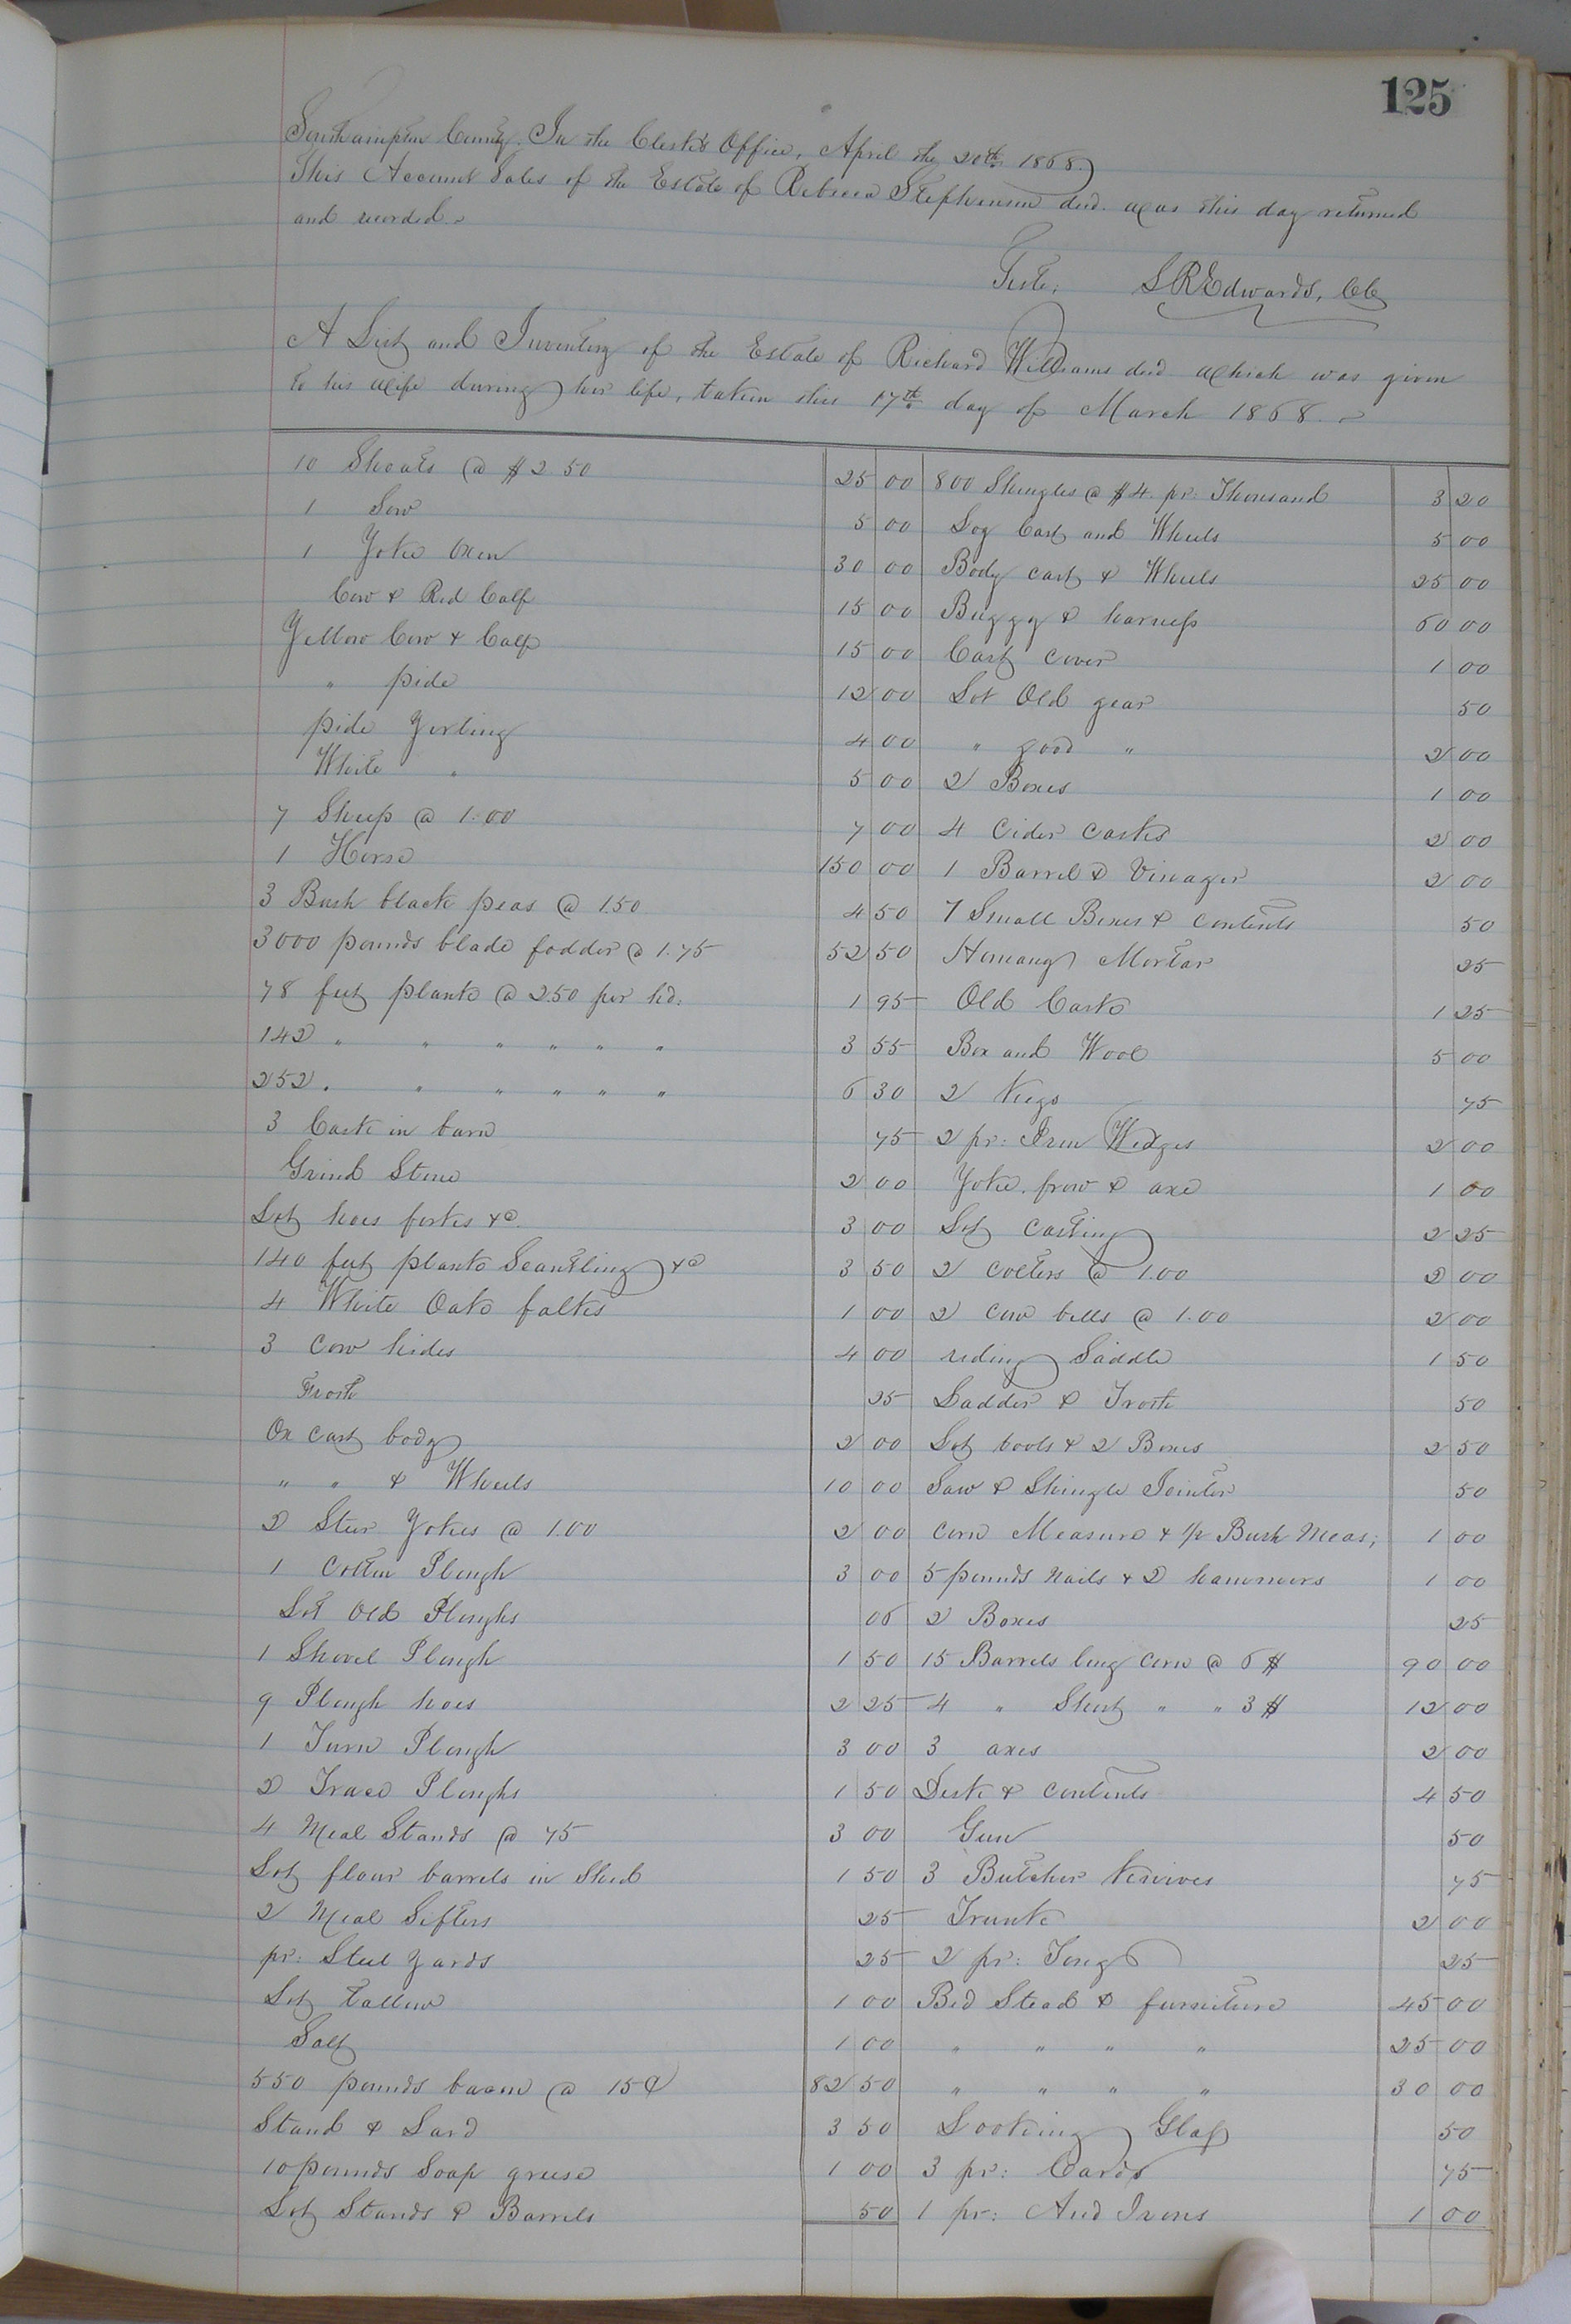 125
Southampton County. In the Clerk's Office, April the 20th 1868.
This Account Sales of the Estate of Rebecca Stephenson decd. was this day returned
and recorded.
Teste, S R Edwards, CC
A List and Inventory of the Estate of Richard Williams decd which was given
to his wife during her life, taken this 17th day of March 1868.
10 Shoats @ $2 50 25 00 800 Shingles @ $4. pr: Thousand 3 20
1 Sow 5 00 Log Cart and Wheels 5 00
1 Yoke Oxen 30 00 Body cart & Wheels 25 00
Cow & Red Calf 15 00 Buggy & harness 60 00
Yellow Cow & Calf 15 00 Cart cover 1 00
" pide 12 00 Lot Old gear 50
pide Yerling 4 00 " good " 2 00
White " 5 00 2 Boxes 1 00
7 Sheep @ 1.00 7 00 4 Cider casks 2 00
1 Horse 150 00 1 Barrel & Vinager 2 00
3 Bush black peas @ 1.50 4 50 7 Small Boxes & contents 50
3000 pounds blade fodder @ 1.75 52 50 Homany Mortar 25
78 feet plank @ 2.50 per hd: 1 95 Old Cask 1 25
142 " " " " " " 3 55 Box and Wool 5 00
252 . " " " " " 6 30 2 Kegs 75
3 Cask in barn 75 2 pr: Iron Wedges 2 00
Grind Stone 2 00 Yoke, frow & axe 1 00
Lot hoes forks &c. 3 00 Lot casting 2 25
140 feet plank Scantling &c 3 50 2 colters @ 1.00 2 00
4 White Oak falks 1 00 2 cow bells @ 1.00 2 00
3 Cow hides 4 00 riding Saddle 1 50
Trosk 25 Ladder & Trosk 50
Ox cart body 2 00 Lot tools & 2 Boxes 2 50
" " & Wheels 10 00 Saw & Shingle Jointer 50
2 Steer Yokes @ 1.00 2 00 Corn Measure & 1/2 Bush Meas; 1 00
1 Cotton Plough 3 00 5 pounds nails & 2 hammers 1 00
Lot Old Ploughs 06 2 Boxes 25
1 Shovel Plough 1 50 15 Barrels long corn @ 6 $ 90 00
9 Plough hoes 2 25 4 " Short " " 3 $ 12 00
1 Turn Plough 3 00 3 axes 2 00
2 Trace Ploughs 1 50 Desk & contents 4 50
4 Meal Stands @ 75 3 00 Gun 50
Lot flour barrels in Shed 1 50 3 Butcher Knives 75
2 Meal Sifters 25 Trunk 2 00
pr: Steel Yards 25 2 pr: Tongs 25
Lot tallow 1 00 Bed Stead & furniture 45 00
Salt 1 00 " " " " 25 00
550 pounds bacon @ 15¢ 82 50 " " " " 30 00
Stand & Lard 3 50 Looking Glass 50
10 pounds Soap grease 1 00 3 pr: Cards 75
Lot Stands & Barrels 50 1 pr: And Irons 1 00